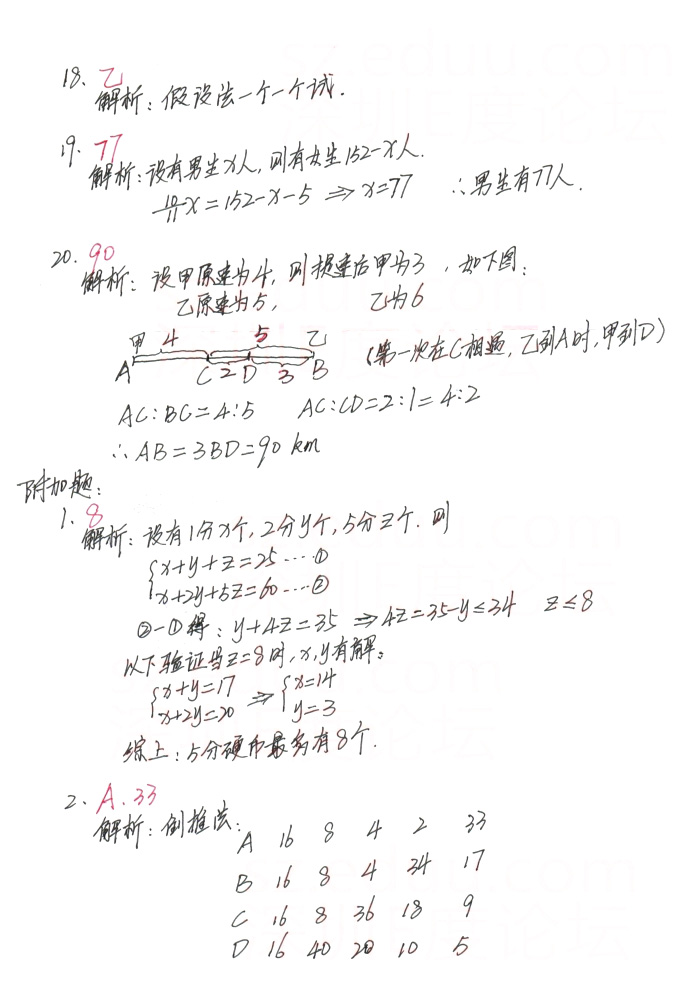 18. 乙
解析：假设法一个一个试.
19. 77
解析：设有男生x人，则有女生152-x人.
10/11 x=152-x-5 ⇒ x=77 ∴男生有77人.
20. 90
解析：设甲原速为4，则提速后甲为3，如下图：
乙原速为5， 乙为6
甲 4 5 乙
A C 2 D 3 B (第一次在C相遇，乙到A时，甲到D)
AC:BC=4:5 AC:CD=2:1=4:2
∴AB=3BD=90 km
附加题：
1. 8
解析：设有1分x个，2分y个，5分z个.则
{x+y+z=25 ····①
x+2y+5z=60 ····②
②-①得：y+4z=35 ⇒4z=35-y≤34 z≤8
以下验证当z=8时，x,y有解。
{x+y=17 ⇒ {x=14
x+2y=20 y=3
综上：5分硬币最多有8个.
2. A.33
解析：倒推法：
A 16 8 4 2 33
B 16 8 4 34 17
C 16 8 36 18 9
D 16 40 20 10 5